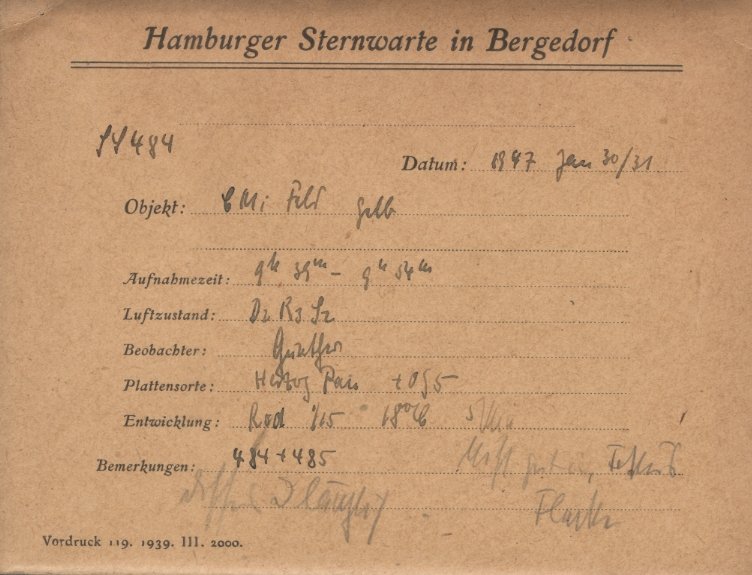 Hamburger Sternwarte in Bergedorf
484
Datum: 1947 Jan 30/31
Objekt: Feld gelb
Aufnahmezeit: 9h 39m – 9h 54m
Luftzustand: D2 R3 S2
Beobachter: Günther
Plattensorte: Herzog Pan
Entwicklung: Rod 1/15 18°C 5 Min
Bemerkungen: 484+485
Vordruck 119. 1939. III. 2000.